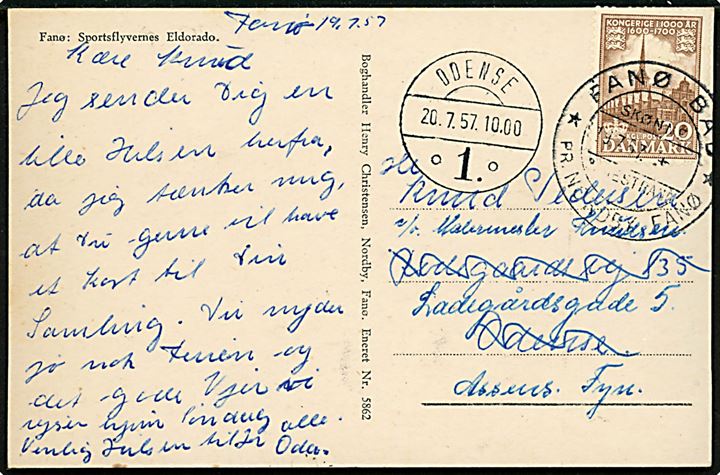 Fanø 19.7.57
Fanø: Sportsflyvernes Eldorado.
Kære Knud
Jeg sender Dig en
lille Hilsen herfra,
da jeg tænker mig,
at Du gerne vil have
et Kort til Din
Samling. Du nyder
jo nok Ferien og
det gode Vejr vi
rejser hjem Søndag alle.
Venlig Hilsen til Jer Oda.
Boghandler Henry Christensen, Nordby, Fanø. Eneret Nr. 5862
ODENSE
20.7.57.10.00
1.
KONGERIGE I 1000 ÅR
1600-1700
DANMARK
FANØ BAD
PR NORDBY FANØ
Hr
Knud Pedersen
c/o. Malermester Knudsen
135
Ladegårdsgade 5.
Odense.
Assens. Fyn.